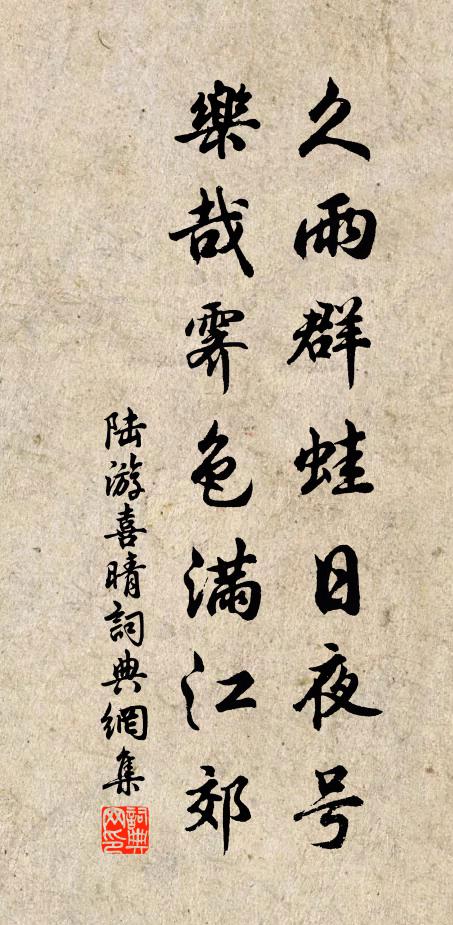 久雨群蛙日夜号
樂哉霽色滿江郊
陆游喜晴詞典網集
詞典網印